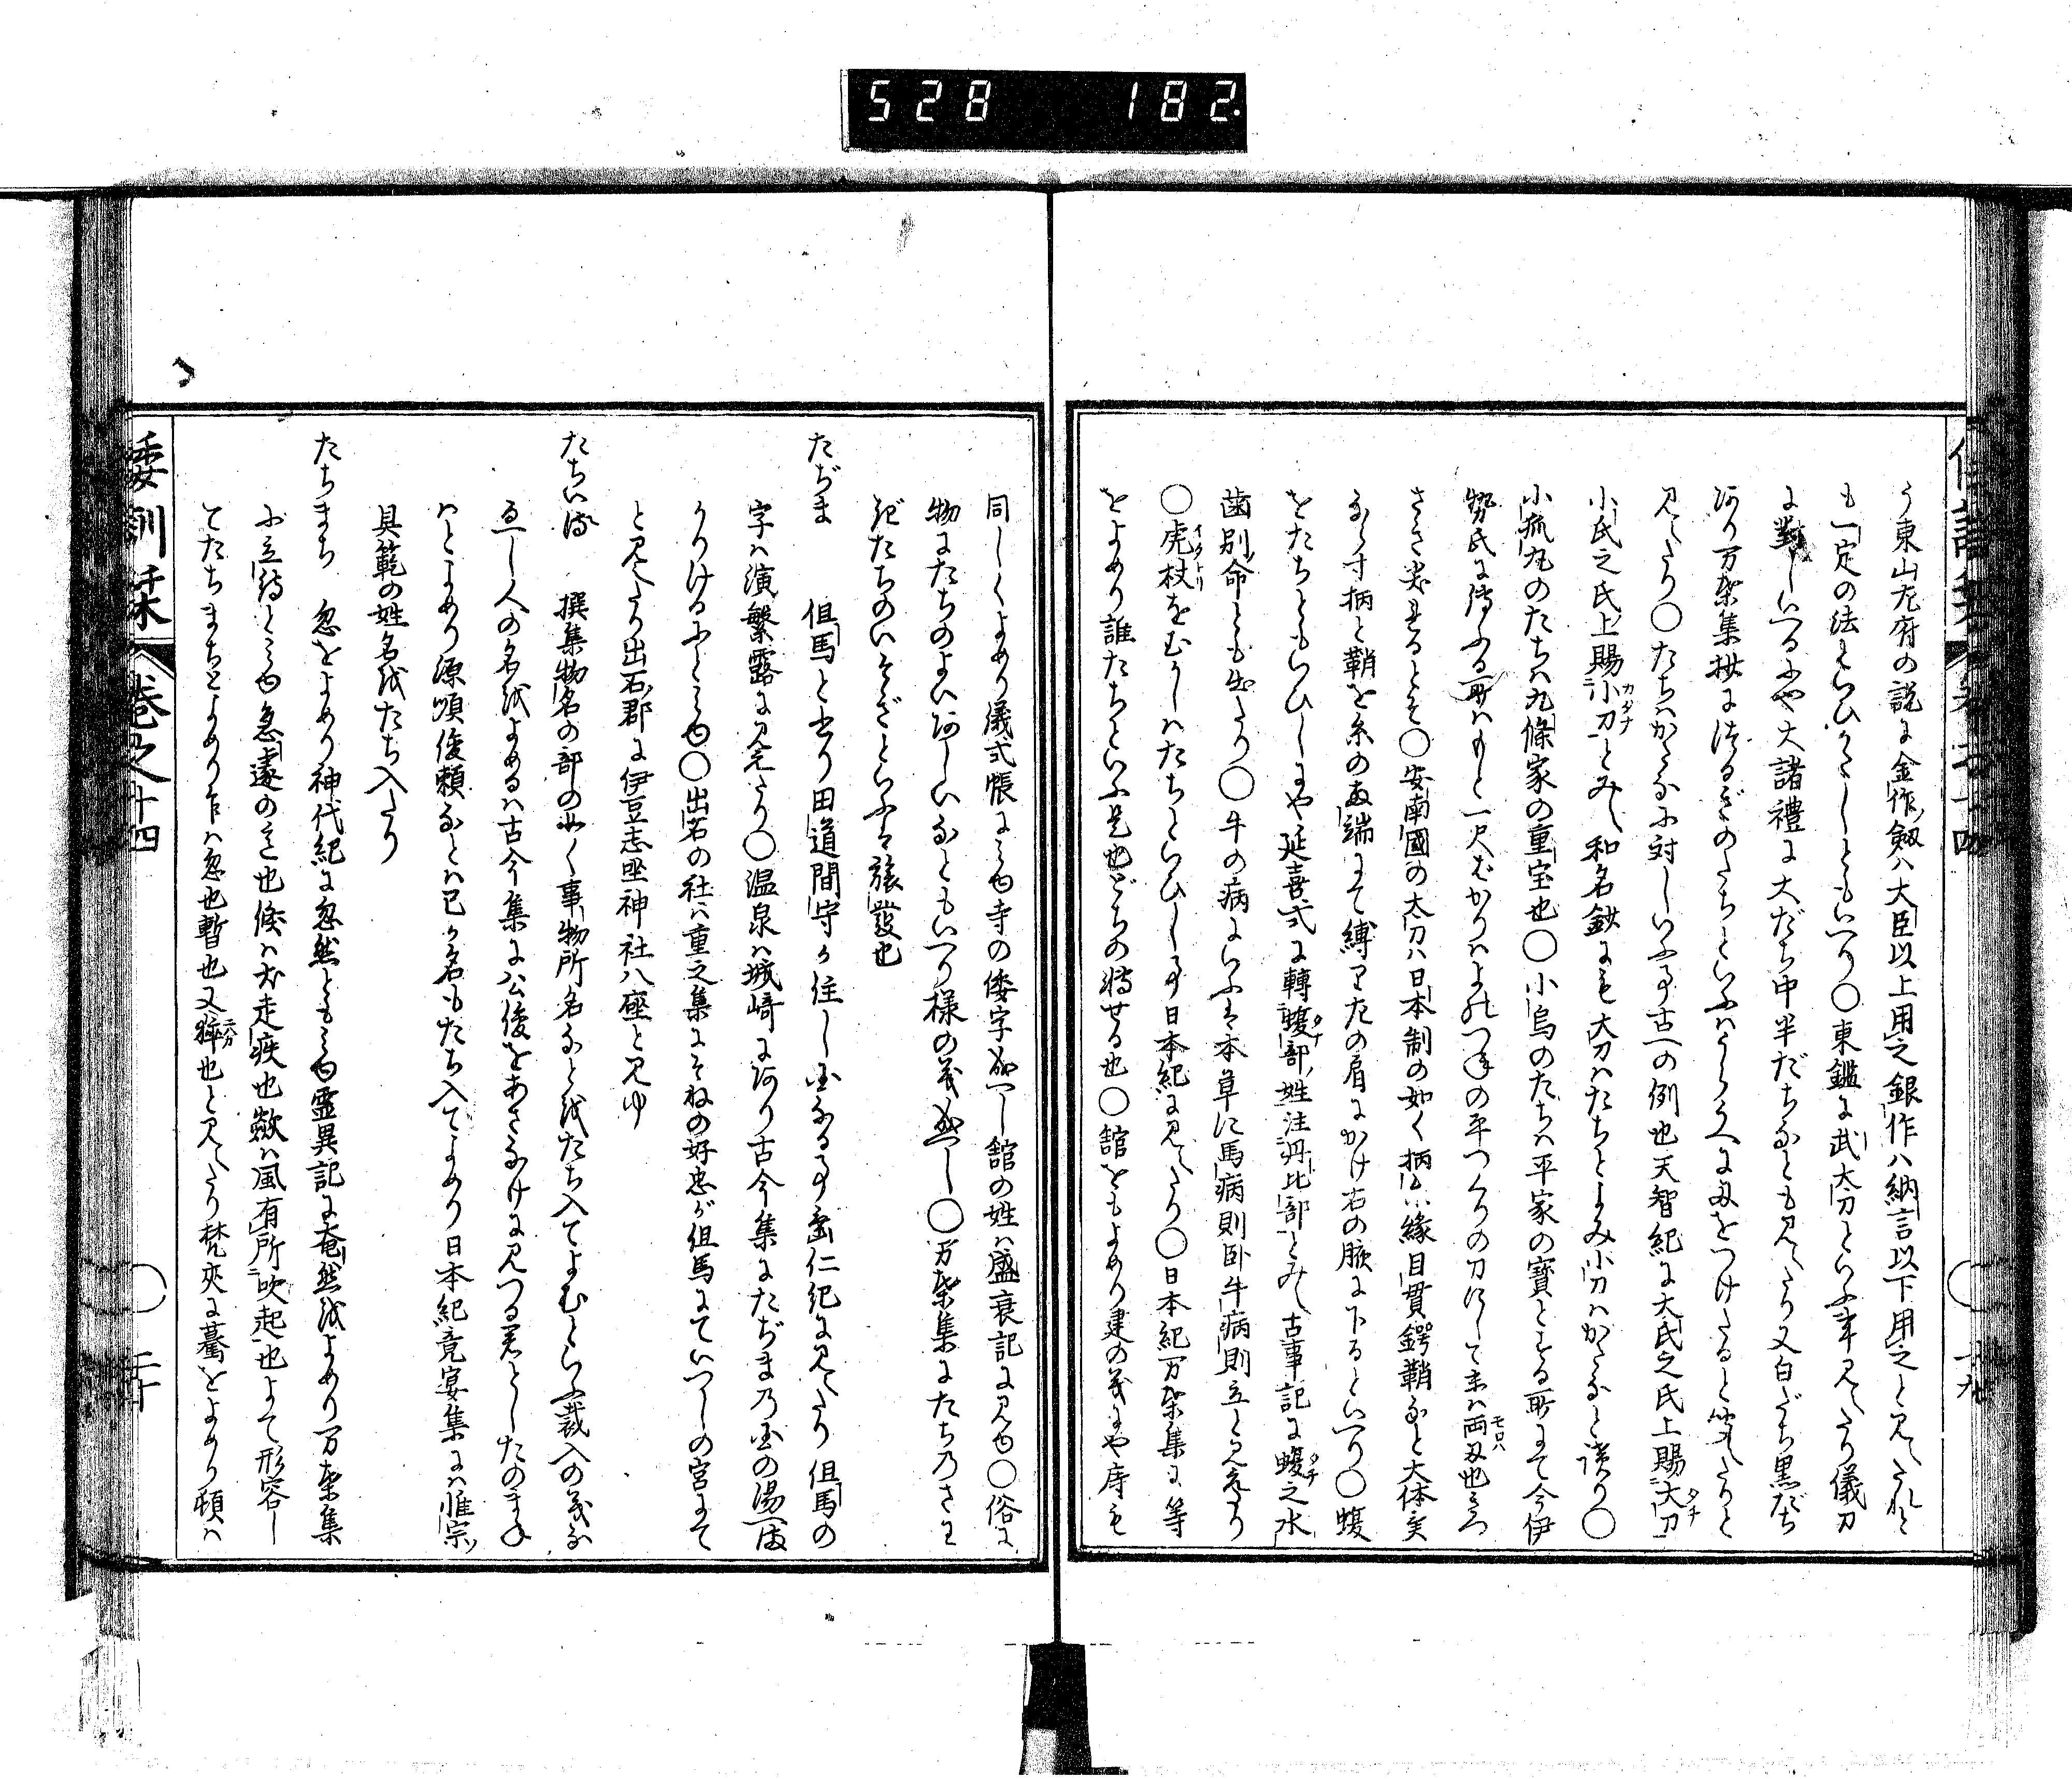 528 182.
う東山左府の説に金作ノ剱ハ大臣以上用之銀作ハ納言以下用之と見えたれと
も一定の法といひかたしともいへり〇東鑑に武太刀といふ事見えたり儀刀
に對していへるにや大諸禮に大だち中半だちなとも見えたり又白だち黒だち
あり万葉集抄につるぎのたちといふハもろ刃に刃をつけたると聞えたりと
見えたり〇たちハかたなに対していふ事古への例也天智紀に大氏之氏上賜大刀
小氏之氏上賜小刀とみえ和名鈔にも大刀ハたちとよみ小刀ハかたなと讀り〇
小狐丸のたちハ九條家の重宝也〇小烏のたちハ平家の寶とする所にて今伊
勢氏に傳ふる所ハもと一尺ばかりハよのつねの平つくりの刀にして末ハ両刃也
〇安南國の大刀ハ日本制の如く柄ハ縁目貫鍔鞘など大体実
ならす柄と鞘を糸の両端にて縛りて左の肩にかけ右の腋に下るといへり〇蝮
をたちともいひしにや延喜式に轉蝮部ノ姓注丹比部とみえ古事記に蝮之水
歯別ノ命とも出たり〇牛の病にいふは本草に馬病則臥牛病則立と見えたり
〇虎杖をむかしハたちといひし事日本紀に見えたり〇日本紀万葉集に等
をよめり誰たちといふ是也どちの轉せる也〇舘をもよめり建の義にや庤も
同しくよめり儀式帳にみゆ寺の倭字成へし舘の姓ハ盛衰記に見ゆ〇俗に
物にたちのよいあしいなともいへり様の義成へし〇万葉集にたちのさわ
ぎたちのいそぎといふは旅發也
たぢま 但馬と書り田道間守か住し國なる事垂仁紀に見えたり但馬の
字ハ演繁露に見えたり〇温泉ハ城崎にあり古今集にたぢまの國の湯へま
かりけるとみゆ〇出石の社ハ重之集にそねの好忠が但馬にていつしの宮にて
と見えたり出石ノ郡に伊豆志坐神社八座と見ゆ
たちいる 撰集物名の部の如く事物所名などをたち入てよむといふ裁入の義な
るへし人の名をよめるハ古今集に公俊をあさなけに見つる君としたのまね
ハとよめり源順俊頼などハ己か名もたち入てよめり日本紀竟宴集にハ惟宗ノ
具範の姓名をたち入たり
たちまち 忽をよめり神代紀に忽然ともみゆ霊異記に奄然をよめり万葉集
に立待とみゆ急遽の意也倏ハ犬走疾也歘ハ風有所吹起也よて形容し
てたちまちとよめり乍ハ忽也暫也又猝也と見えたり梵夾に驀をよめり頓ハ
倭訓栞 巻之十四